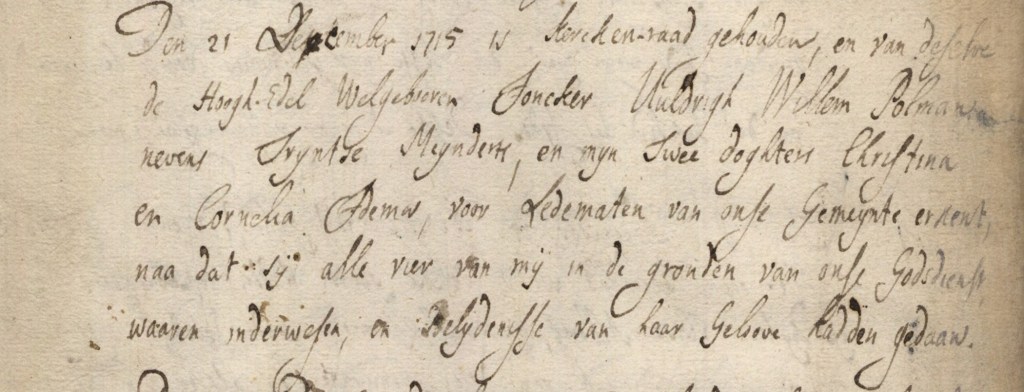 Den 21 September 1715 is kercken-raad gehouden, en van deselve
de Hoogh-Edel Welgebooren Joncker Uuldrigh Willem Polman
nevens Tryntse Meynderts, en mijn twee doghters Christina
en Cornelia Ademes, voor Ledematen van onse Gemeynte erkent,
naa dat sij alle vier van mij in de gronden van onse Godsdienst
waaren onderwesen, en Belydenisse van haar Geloove hadden gedaan.